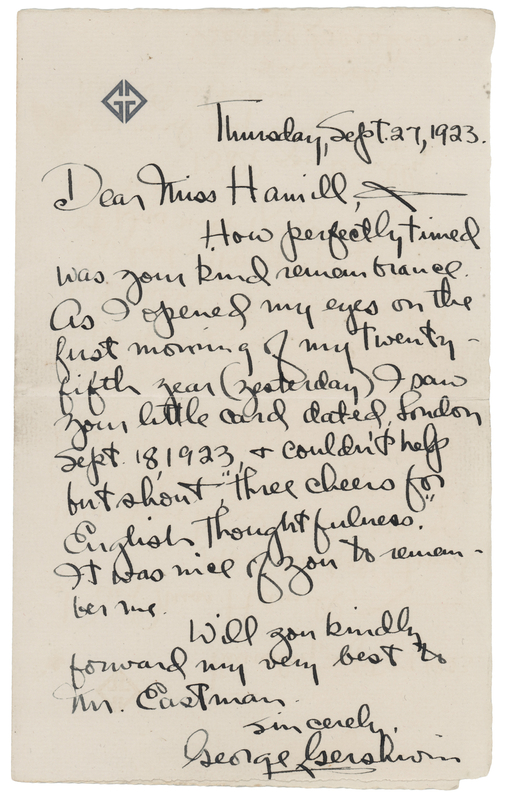 Thursday, Sept. 27, 1923.
Dear Miss Hamill,
How perfectly timed
was your kind remembrance.
As I opened my eyes on the
first morning of my twenty-
fifth year (yesterday) I saw
your little card dated, London
Sept. 18, 1923, & couldn't help
but shout, "three cheers for
English Thoughtfulness."
It was nice of you to remem-
ber me.
Will you kindly
forward my very best to
Mr. Eastman.
Sincerely,
George Gershwin